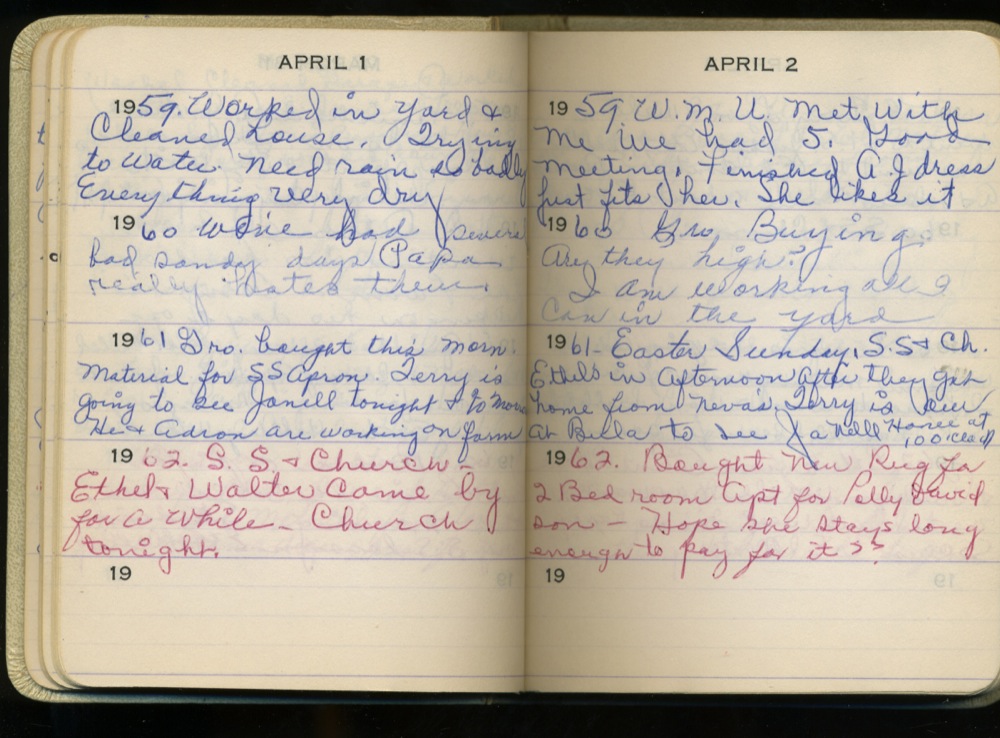 APRIL 1
1959. Worked in yard &
Cleaned house. Trying
to water. Need rain so badly
Everything very dry
1960 We've had severe
bad sandy days Papa
really hates them.
1961 Gro. bought this morn.
Material for SS apron. Terry is
going to see Janell tonight & to morrow
He & Adron are working on farm
1962. S. S & Church -
Ethel & Walter Came by
for a while - Church
tonight.
19
APRIL 2
1959 W. M. U. Met With
me we had 5. Good
meeting. Finished A. J dress
Just fits her. She likes it
1960 Gro Buying
Are they high?
I am working all I
Can in the yard
1961- Easter Sunday, S.S & Ch.
Ethel's in afternoon after they got
home from Neva's. Terry is over
at Bula to see Janell Home at
1:00 o'clock
1962. Bought new Rug for
2 Bed room apt for Polly David
son - Hope she stays long
enough to pay for it ??
19